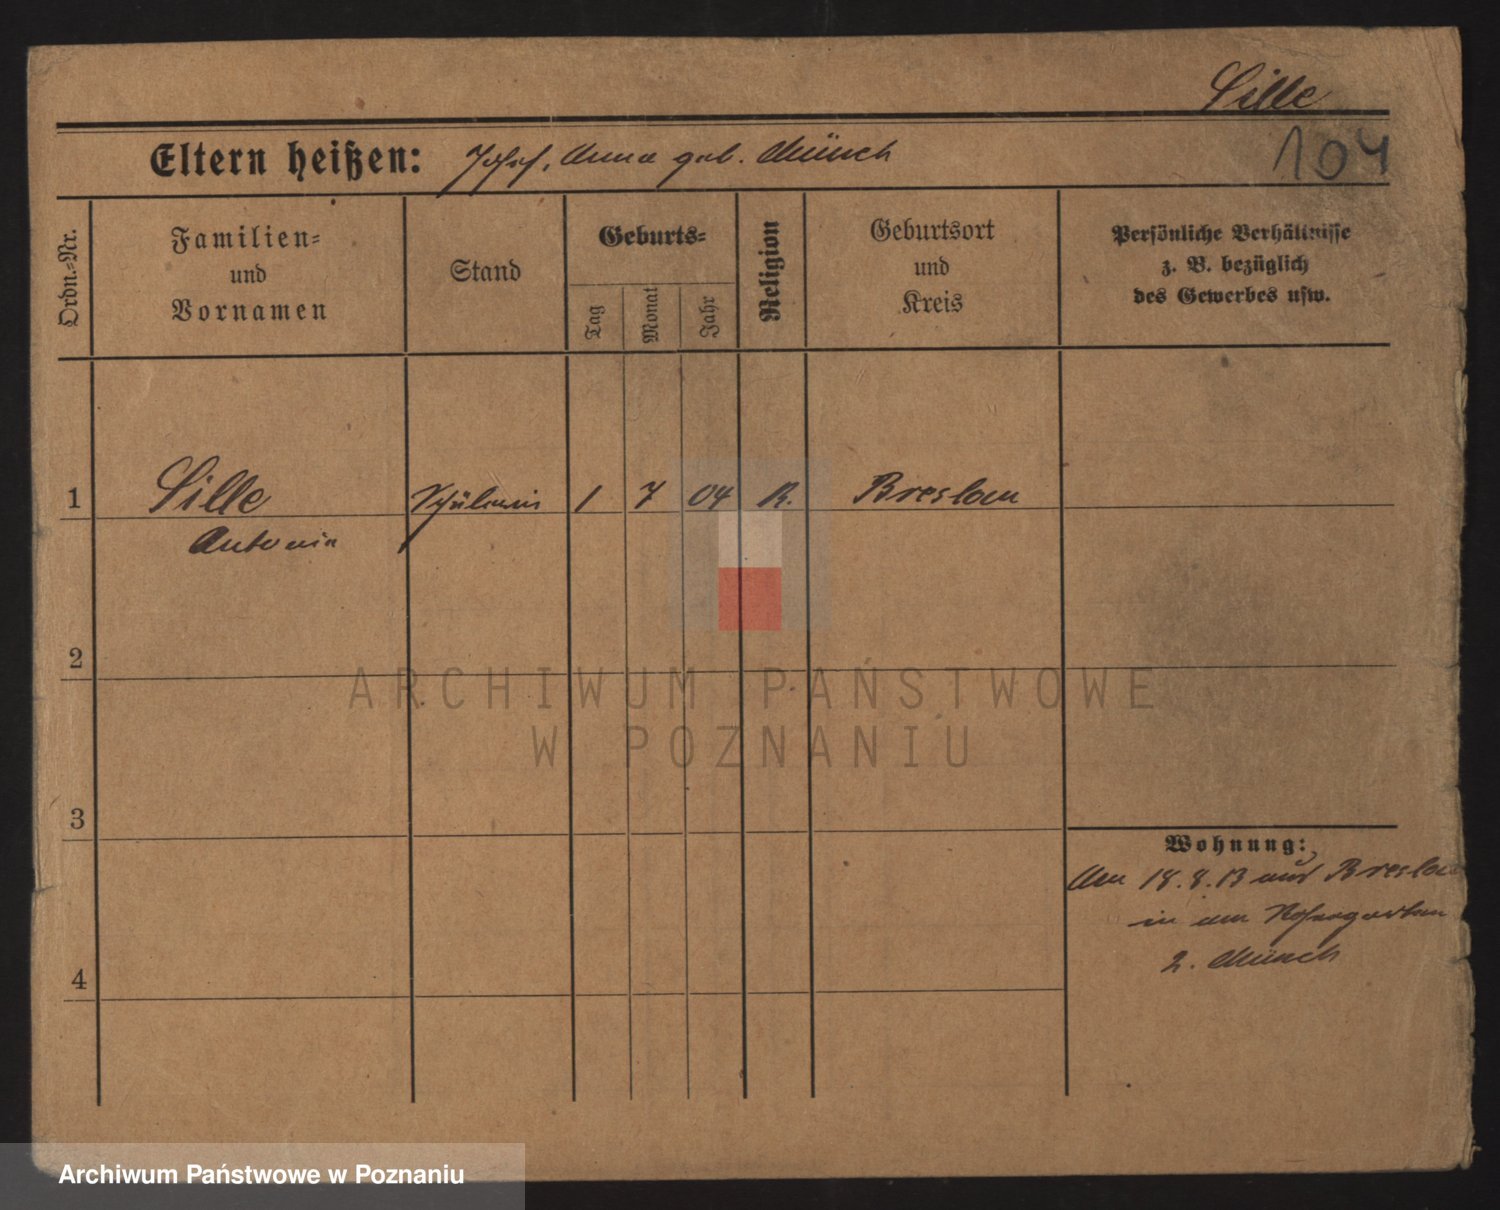 Sille
104
Eltern heißen: Josef, Anna geb. Münch
Ordn.-Nr.
Familien-
und
Vornamen
Stand
Geburts-
Tag
Monat
Jahr
Religion
Geburtsort
und
Kreis
Persönliche Verhältnisse
z. B. bezüglich
des Gewerbes usw.
1 Sille Schülerin 1 7 04 K. Breslau
Antonie
2
ARCHIWUM PAŃSTWOWE
W POZNANIU
3
Wohnung:
Am 18.8.13 aus Breslau
in am
2. Münch
4
Archiwum Państwowe w Poznaniu